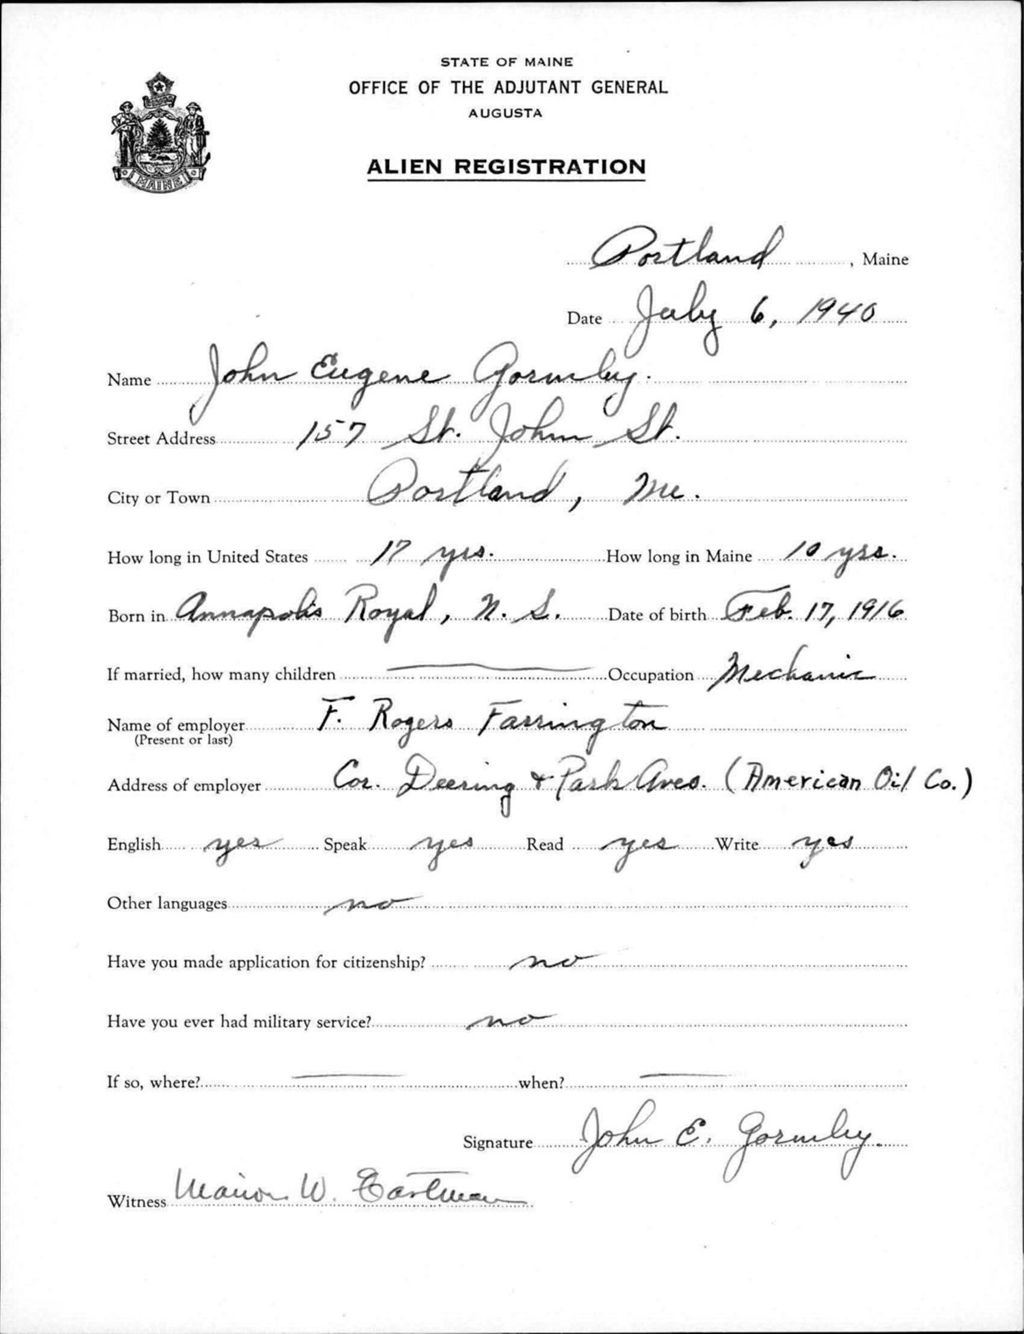 STATE OF MAINE
OFFICE OF THE ADJUTANT GENERAL
AUGUSTA
ALIEN REGISTRATION
MAINE
Portland, Maine
Date July 6, 1940
Name John Eugene Gormley.
Street Address 157 St. John St.
City or Town Portland, Me.
How long in United States 17 yrs. How long in Maine 10 yrs.
Born in Annapolis Royal, N. S. Date of birth Feb. 17, 1916
If married, how many children — Occupation Mechanic
Name of employer F. Rogers Farrington
(Present or last)
Address of employer Cor. Deering & Park Aves. (American Oil Co.)
English yes Speak yes Read yes Write yes
Other languages no
Have you made application for citizenship? no
Have you ever had military service? no
If so, where? — when? —
Signature John E. Gormley.
Witness Marion W. Eastman